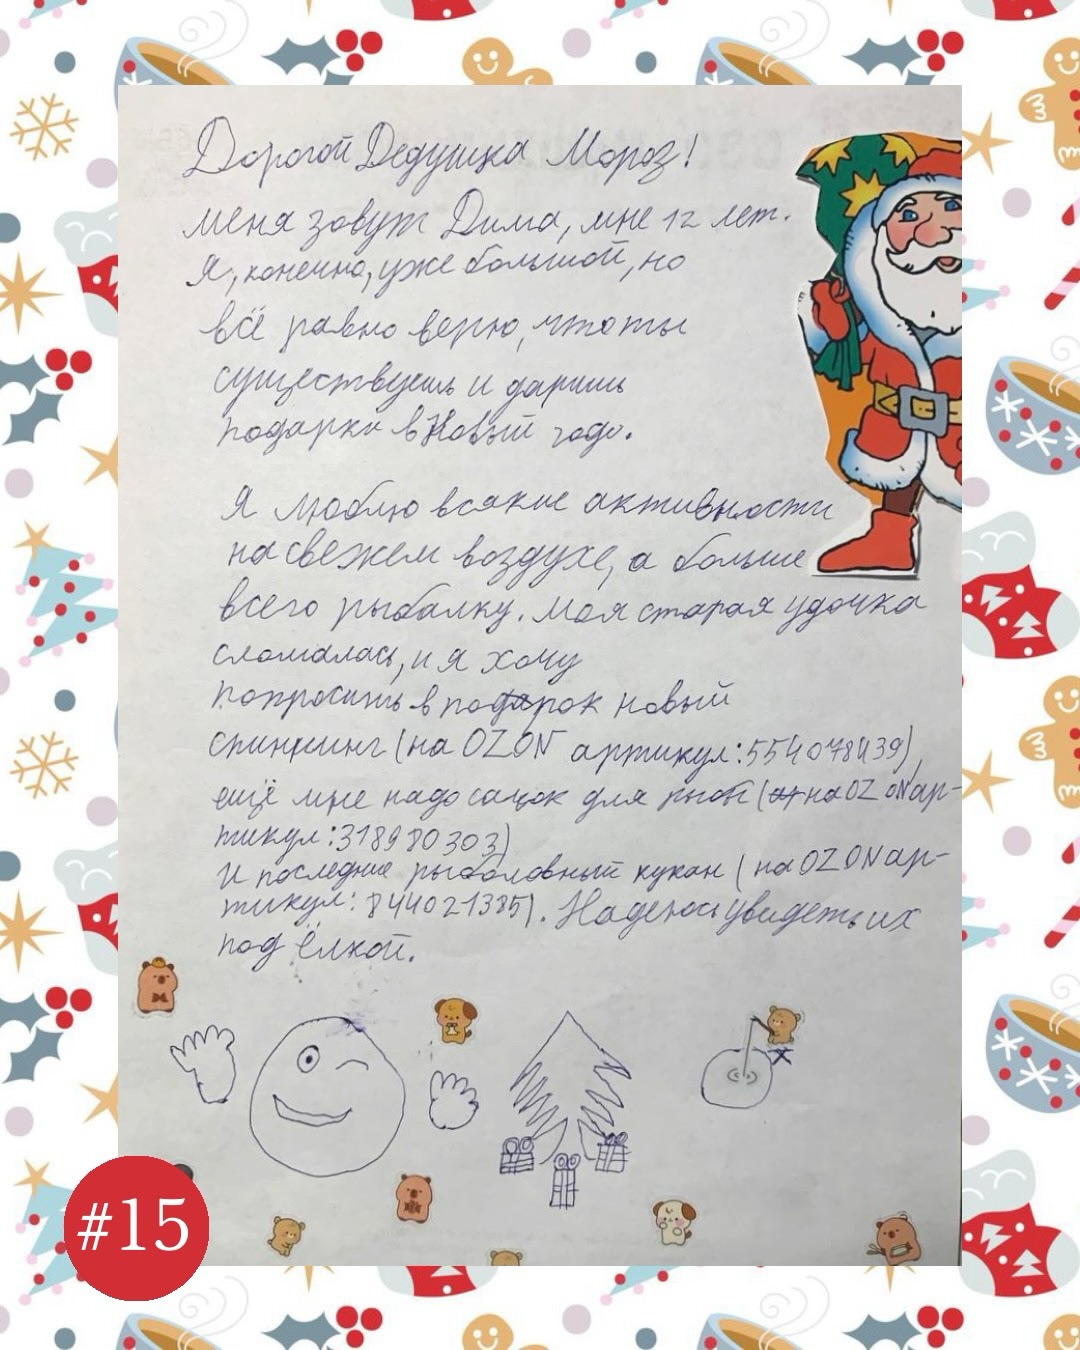 Дорогой Дедушка Мороз!
меня зовут Дима, мне 12 лет.
Я, конечно, уже большой, но
всё равно верю, что ты
существуешь и даришь
подарки в Новый годо.
Я люблю всякие активности
на свежем воздухе, а больше
всего рыбалку. Моя старая удочка
сломалась, и я хочу
попросить в подарок новый
спиннинг (на OZON артикул: 554078439),
ещё мне надо сачок для рыбы (на OZON ар-
тикул: 318980303)
И последние рыболовный кукан (на OZON ар-
тикул: 844021385). Надеюсь увидеть их
под ёлкой.
#15